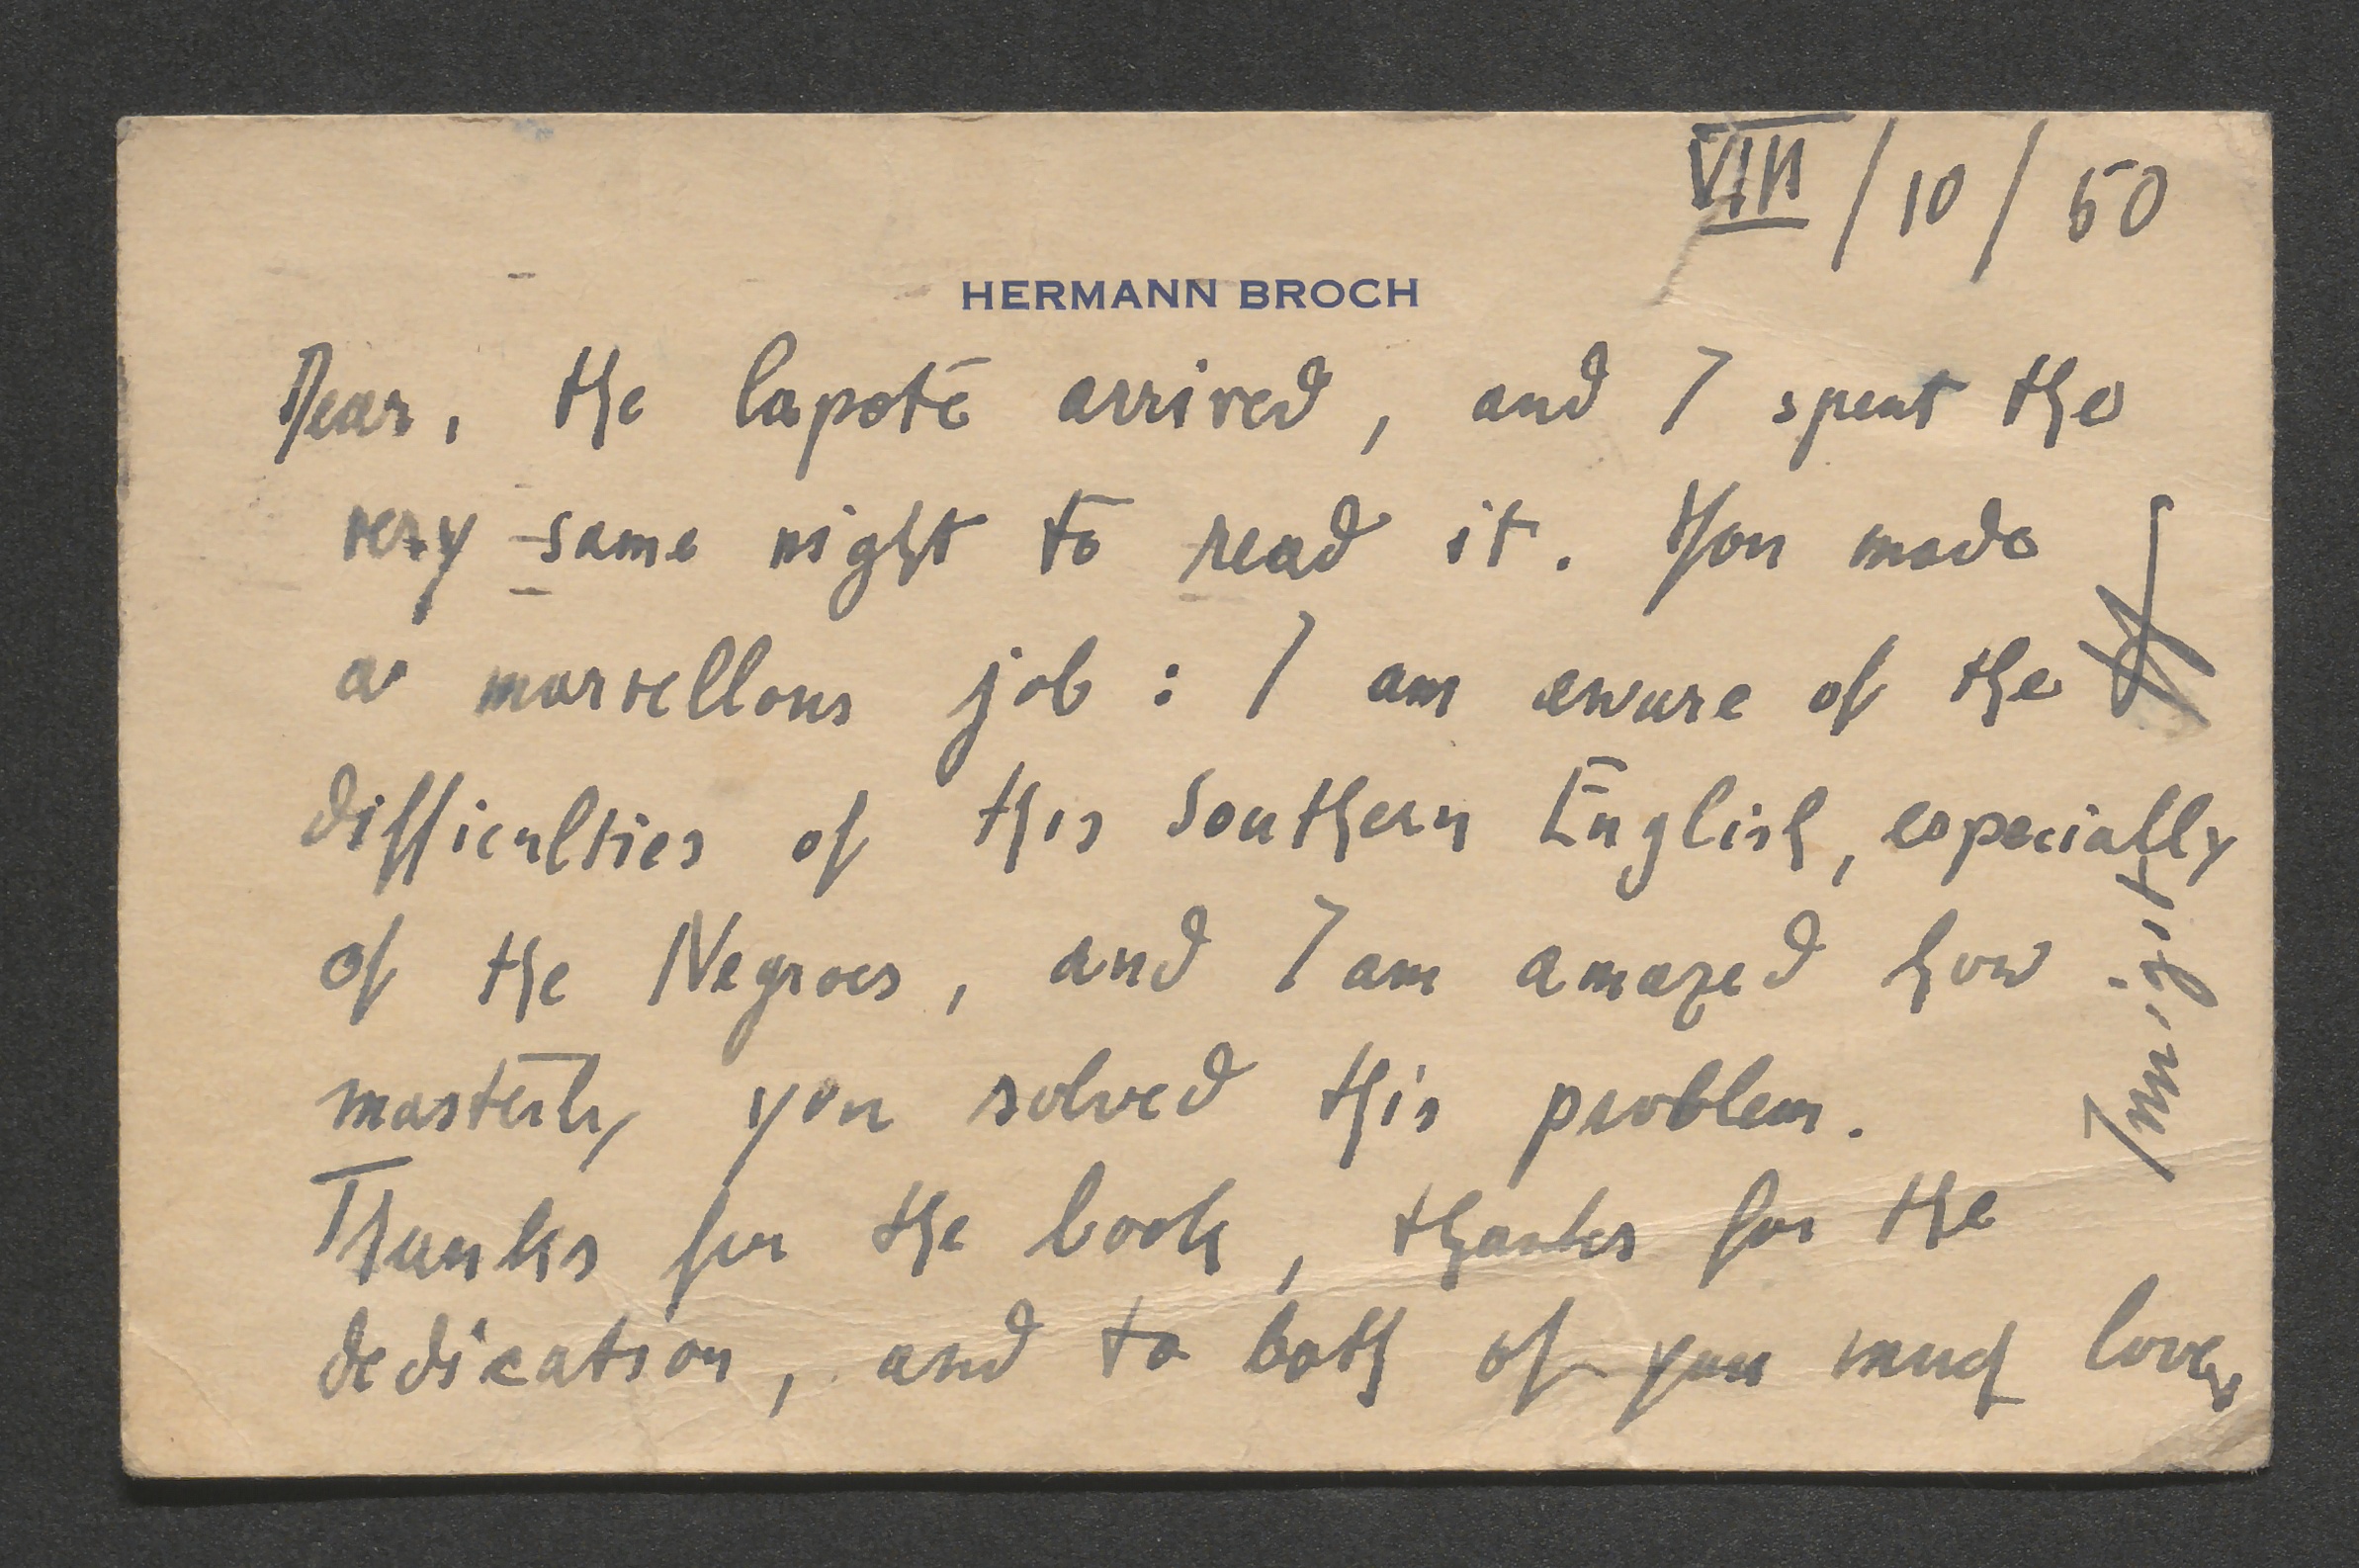 VIII / 10 / 50
HERMANN BROCH
Dear, the Capote arrived, and I spent the
very same night to read it. You made
a marvellous job : I am aware of the
difficulties of this Southern English, especially
of the Negroes, and I am amazed how
masterly you solved this problem.
Thanks for the book, thanks for the
dedication, and to both of you much love,
H